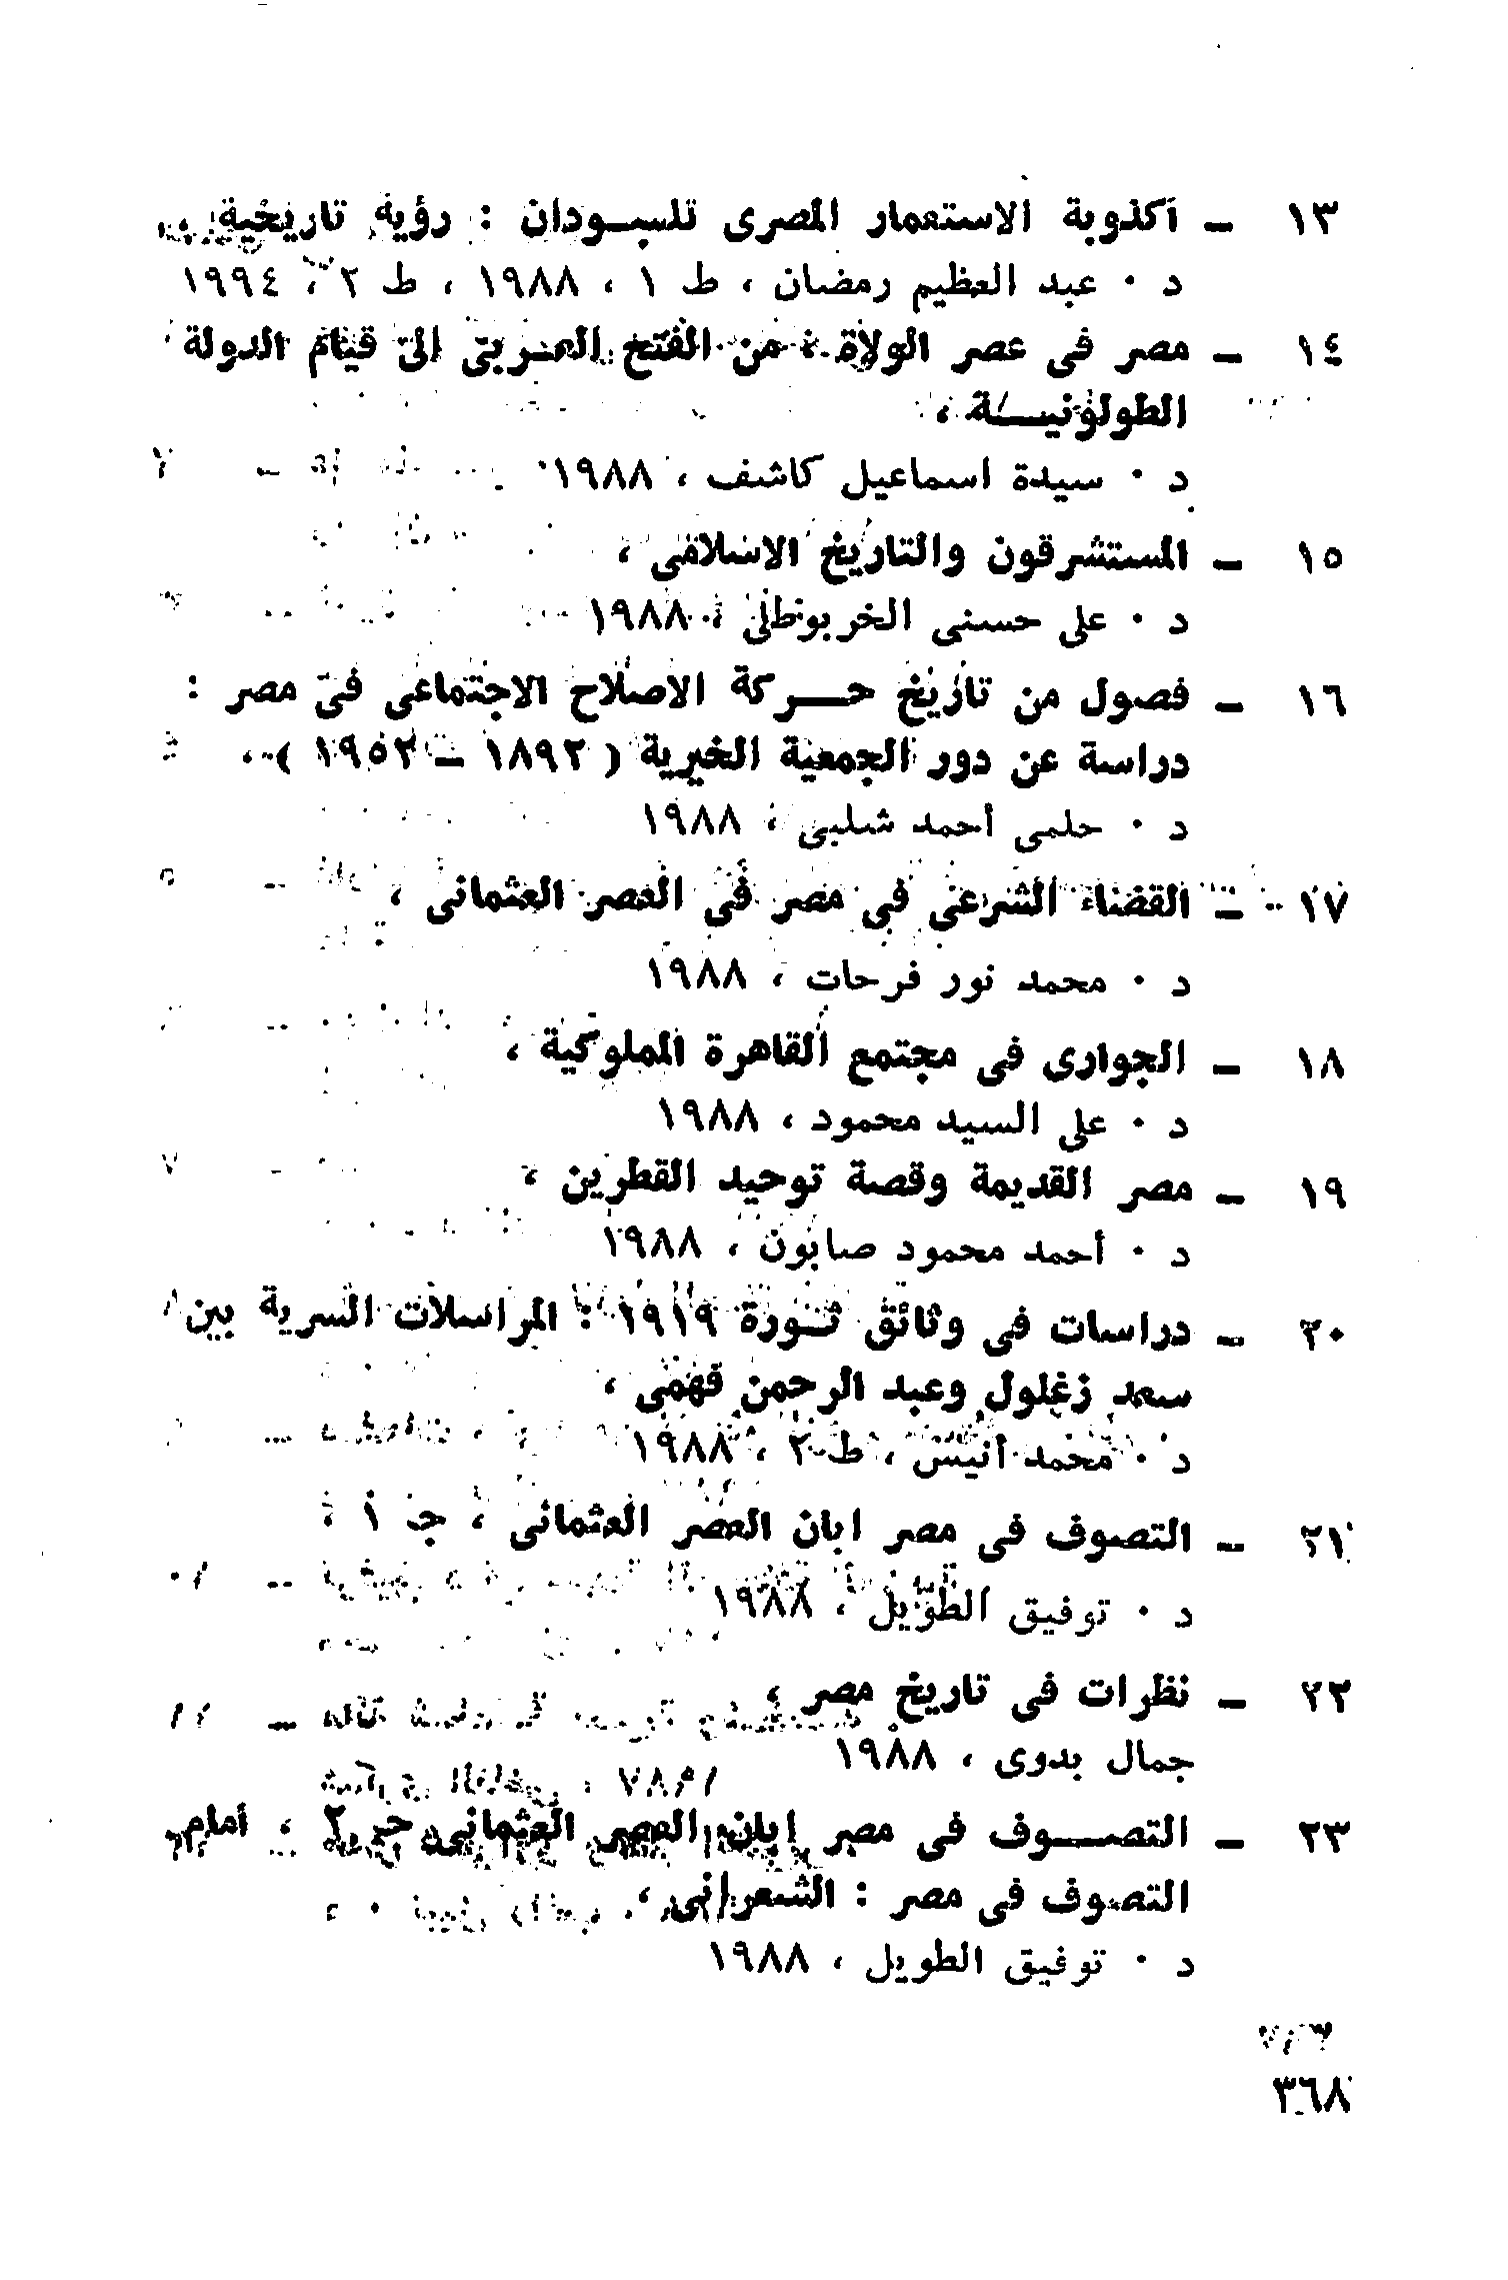 ١٣ ـ أكذوبة الاستعمار المصرى للسـودان : رؤية تاريخية
د ٠ عبد العظيم رمضان ، ط ١ ، ١٩٨٨ ، ط ٢ ، ١٩٩٤
١٤ ـ مصر فى عصر الولاة ، من الفتح العـربى الى قيام الدولة
الطولونيـة ،
د ٠ سيدة اسماعيل كاشف ، ١٩٨٨
١٥ ـ المستشرقون والتاريخ الاسلامى ،
د ٠ على حسنى الخربوطلى ، ١٩٨٨
١٦ ـ فصول من تاريخ حـركة الاصلاح الاجتماعى فى مصر :
دراسة عن دور الجمعية الخيرية ( ١٨٩٢ ـ ١٩٥٢ ) ،
د ٠ حلمى أحمد شلبى ، ١٩٨٨
١٧ ـ القضاء الشرعى فى مصر فى العصر العثمانى ،
د ٠ محمد نور فرحات ، ١٩٨٨
١٨ ـ الجوارى فى مجتمع القاهرة المملوكية ،
د ٠ على السيد محمود ، ١٩٨٨
١٩ ـ مصر القديمة وقصة توحيد القطرين ،
د ٠ أحمد محمود صابون ، ١٩٨٨
٢٠ ـ دراسات فى وثائق ثـورة ١٩١٩ : المراسلات السرية بين
سعد زغلول وعبد الرحمن فهمى ،
د ٠ محمد أنيس ، ط ٢ ، ١٩٨٨
٢١ ـ التصوف فى مصر ابان العصر العثمانى ، جـ ١ ،
د ٠ توفيق الطويل ، ١٩٨٨
٢٢ ـ نظرات فى تاريخ مصر ،
جمال بدوى ، ١٩٨٨
٢٣ ـ التصـوف فى مصر إبان العصر العثمانى جـ ٢ ، امام
التصوف فى مصر : الشعرانى ،
د ٠ توفيق الطويل ، ١٩٨٨
٣٦٨